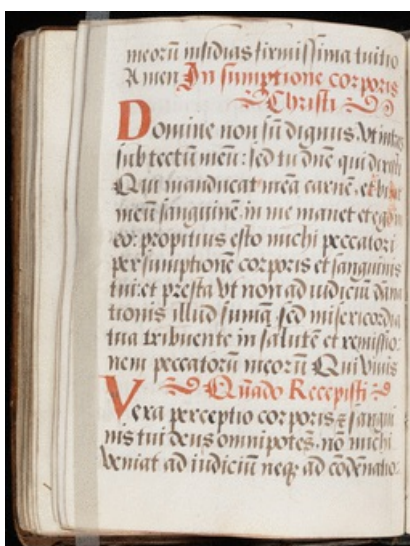 meorū insidias firmissima tuitio
Amen In sumptione corporis
Christi
Domine non sū dignus vt intres
sub tectum meū: sed tu dn̄e qui dixisti
Qui manducat meā carnē et bibit
meū sanguinē in me manet et ego in
eo: propitius esto michi peccatori
per sumptionē corporis et sanguinis
tui: et presta vt non ad iudiciū dāna
tionis illud sumā sed misericordia
tua tribuente in salutē et remissio-
nem peccatorū meorū Qui viuis
Quādo Recepisti
Vera perceptio corporis z sangui
nis tui deus omnipotēs. nō michi
veniat ad iudiciū neqz ad cōdēnatio-